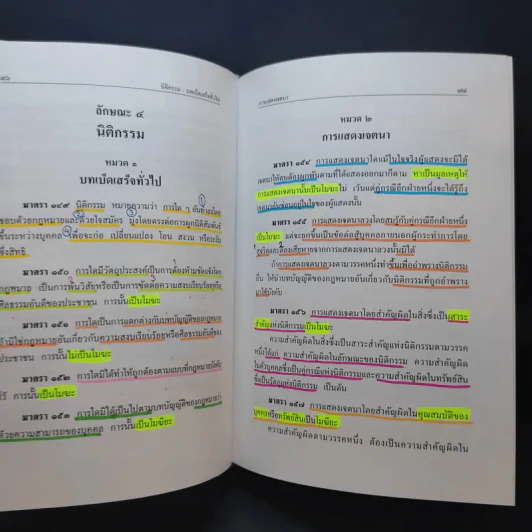 ๘๖
นิติกรรม : บทเบ็ดเสร็จทั่วไป
ลักษณะ ๔
นิติกรรม
หมวด ๑
บทเบ็ดเสร็จทั่วไป
มาตรา ๑๔๙ นิติกรรม หมายความว่า การใด ๆ อันทำลงโดย
ชอบด้วยกฎหมายและด้วยใจสมัคร มุ่งโดยตรงต่อการผูกนิติสัมพันธ์
ขึ้นระหว่างบุคคล เพื่อจะก่อ เปลี่ยนแปลง โอน สงวน หรือระงับ
ซึ่งสิทธิ
มาตรา ๑๕๐ การใดมีวัตถุประสงค์เป็นการต้องห้ามชัดแจ้งโดย
กฎหมาย เป็นการพ้นวิสัยหรือเป็นการขัดต่อความสงบเรียบร้อยหรือ
ศีลธรรมอันดีของประชาชน การนั้นเป็นโมฆะ
มาตรา ๑๕๑ การใดเป็นการแตกต่างกับบทบัญญัติของกฎหมาย
ถ้ามิใช่กฎหมายอันเกี่ยวกับความสงบเรียบร้อยหรือศีลธรรมอันดีของ
ประชาชน การนั้นไม่เป็นโมฆะ
มาตรา ๑๕๒ การใดมิได้ทำให้ถูกต้องตามแบบที่กฎหมายบังคับ
ไว้ การนั้นเป็นโมฆะ
มาตรา ๑๕๓ การใดมิได้เป็นไปตามบทบัญญัติของกฎหมายว่า
ด้วยความสามารถของบุคคล การนั้นเป็นโมฆียะ
การแสดงเจตนา
๘๗
หมวด ๒
การแสดงเจตนา
มาตรา ๑๕๔ การแสดงเจตนาใดแม้ในใจจริงผู้แสดงจะมิได้
เจตนาให้ตนต้องผูกพันตามที่ได้แสดงออกมาก็ตาม หาเป็นมูลเหตุให้
การแสดงเจตนานั้นเป็นโมฆะไม่ เว้นแต่คู่กรณีอีกฝ่ายหนึ่งจะได้รู้ถึง
เจตนาอันซ่อนอยู่ในใจของผู้แสดงนั้น
มาตรา ๑๕๕ การแสดงเจตนาลวงโดยสมรู้กับคู่กรณีอีกฝ่ายหนึ่ง
เป็นโมฆะ แต่จะยกขึ้นเป็นข้อต่อสู้บุคคลภายนอกผู้กระทำการโดย
สุจริตและต้องเสียหายจากการแสดงเจตนาลวงนั้นมิได้
ถ้าการแสดงเจตนาลวงตามวรรคหนึ่งทำขึ้นเพื่ออำพรางนิติกรรม
อื่น ให้นำบทบัญญัติของกฎหมายอันเกี่ยวกับนิติกรรมที่ถูกอำพราง
มาใช้บังคับ
มาตรา ๑๕๖ การแสดงเจตนาโดยสำคัญผิดในสิ่งซึ่งเป็นสาระ
สำคัญแห่งนิติกรรมเป็นโมฆะ
ความสำคัญผิดในสิ่งซึ่งเป็นสาระสำคัญแห่งนิติกรรมตามวรรค
หนึ่งได้แก่ ความสำคัญผิดในลักษณะของนิติกรรม ความสำคัญผิด
ในตัวบุคคลซึ่งเป็นคู่กรณีแห่งนิติกรรมและความสำคัญผิดในทรัพย์สิน
ซึ่งเป็นวัตถุแห่งนิติกรรม เป็นต้น
มาตรา ๑๕๗ การแสดงเจตนาโดยสำคัญผิดในคุณสมบัติของ
บุคคลหรือทรัพย์สินเป็นโมฆียะ
ความสำคัญผิดตามวรรคหนึ่ง ต้องเป็นความสำคัญผิดใน